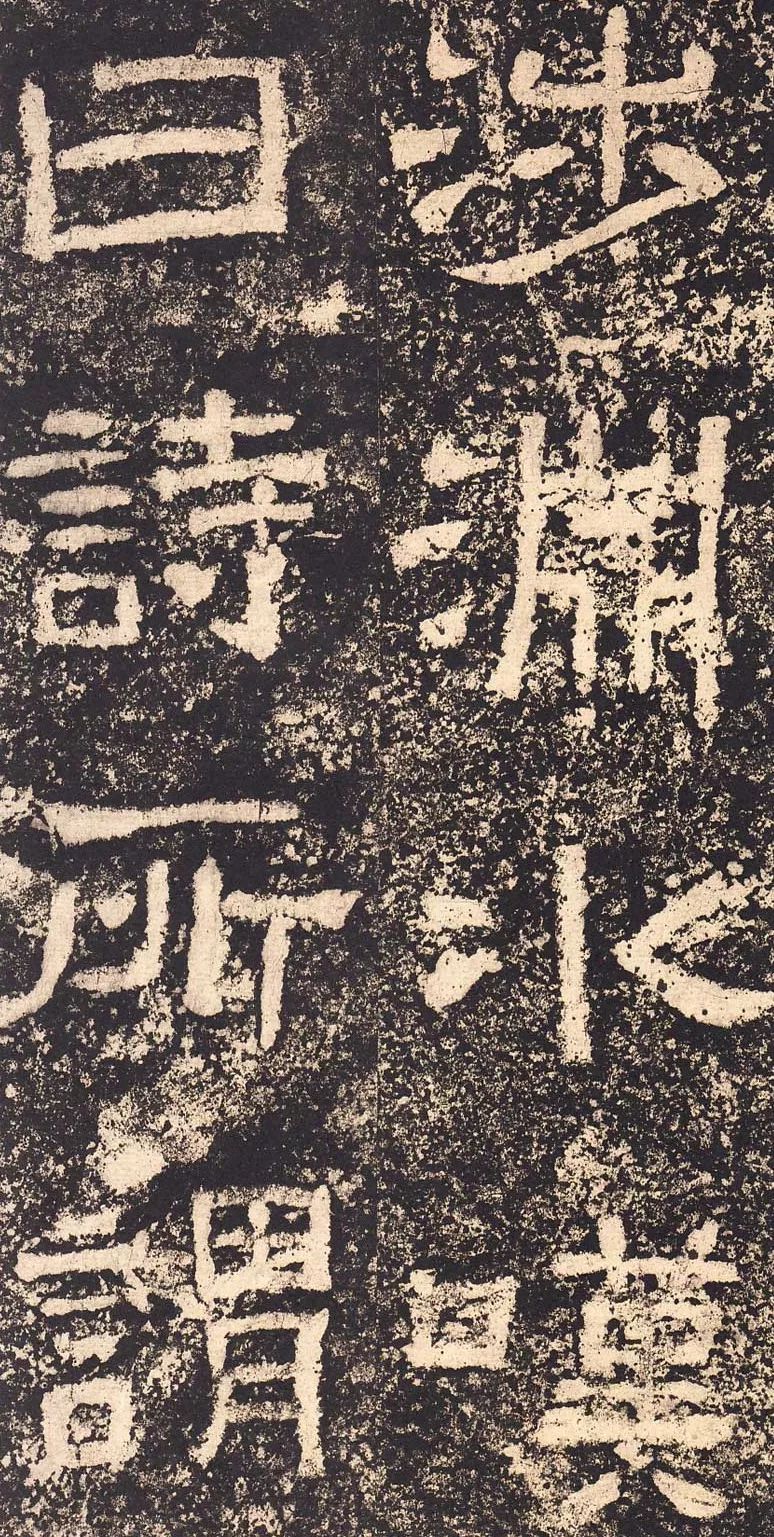 涉淵冰嘆
曰詩所謂